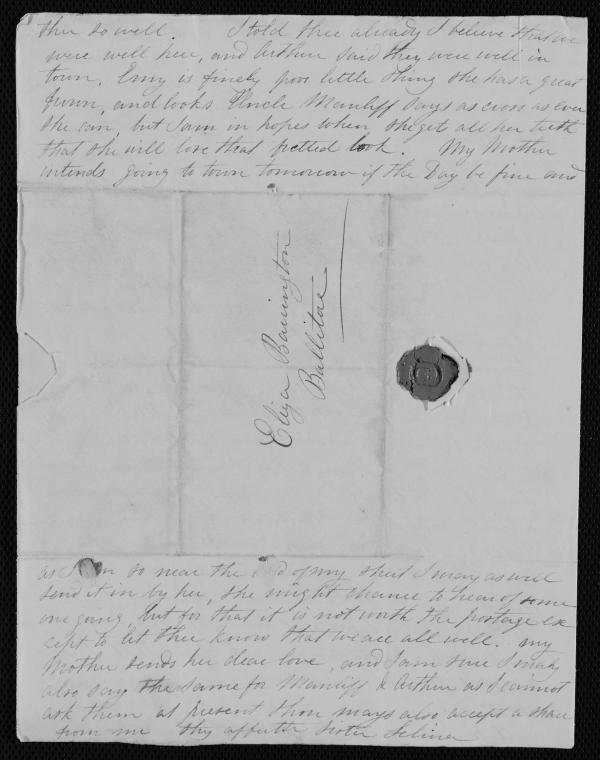 thee so well. I told thee already I believe that we
were well here, and Arthur said they were well in
town. Emy is finely poor little thing she has a great
frown, and looks Uncle Manliff says as cross as ever
she can, but I am in hopes when she gets all her teeth
that she will lose that fretted look. My Mother
intends going to town tomorrow if the Day be fine and
Eliza Barrington
Ballitore
as I am so near the end of my sheet I may as well
send it in by her, she might chance to hear of some
one going, but for that it is not worth the postage ex
cept to let thee know that we are all well. my
Mother sends her dear love, and I am sure I may
also say the same for Manliff & Arthur as I cannot
ask them at present thou mays also accept a share
from me thy affecte Sister Selina